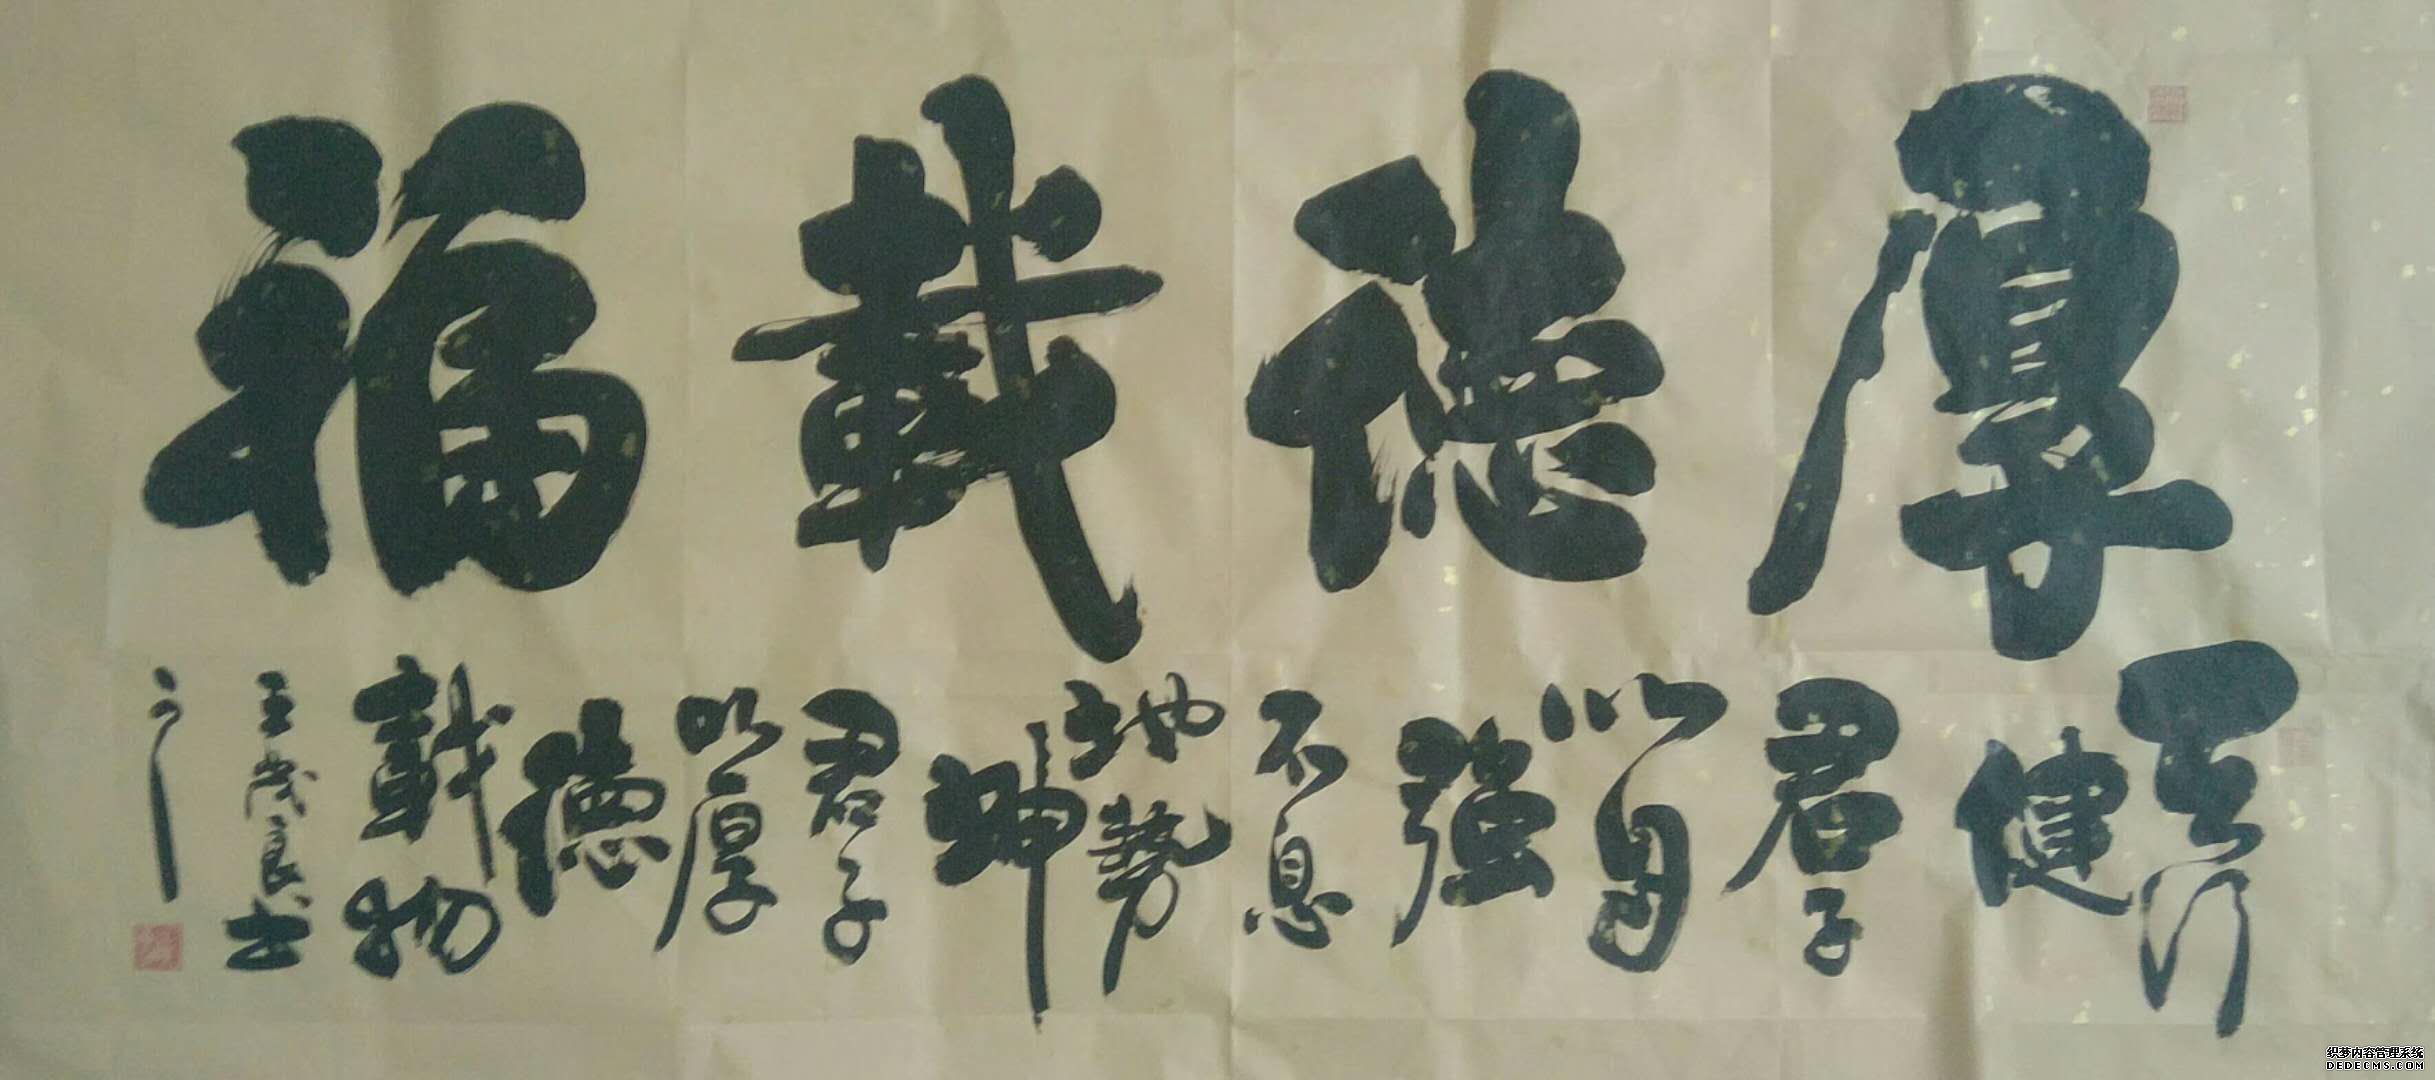 厚德載福
天行
健
君子
以自
強
不息
地勢
坤
君子
以厚
德
載物
王茂良
书
织梦内容管理系统
DEDECMS.COM